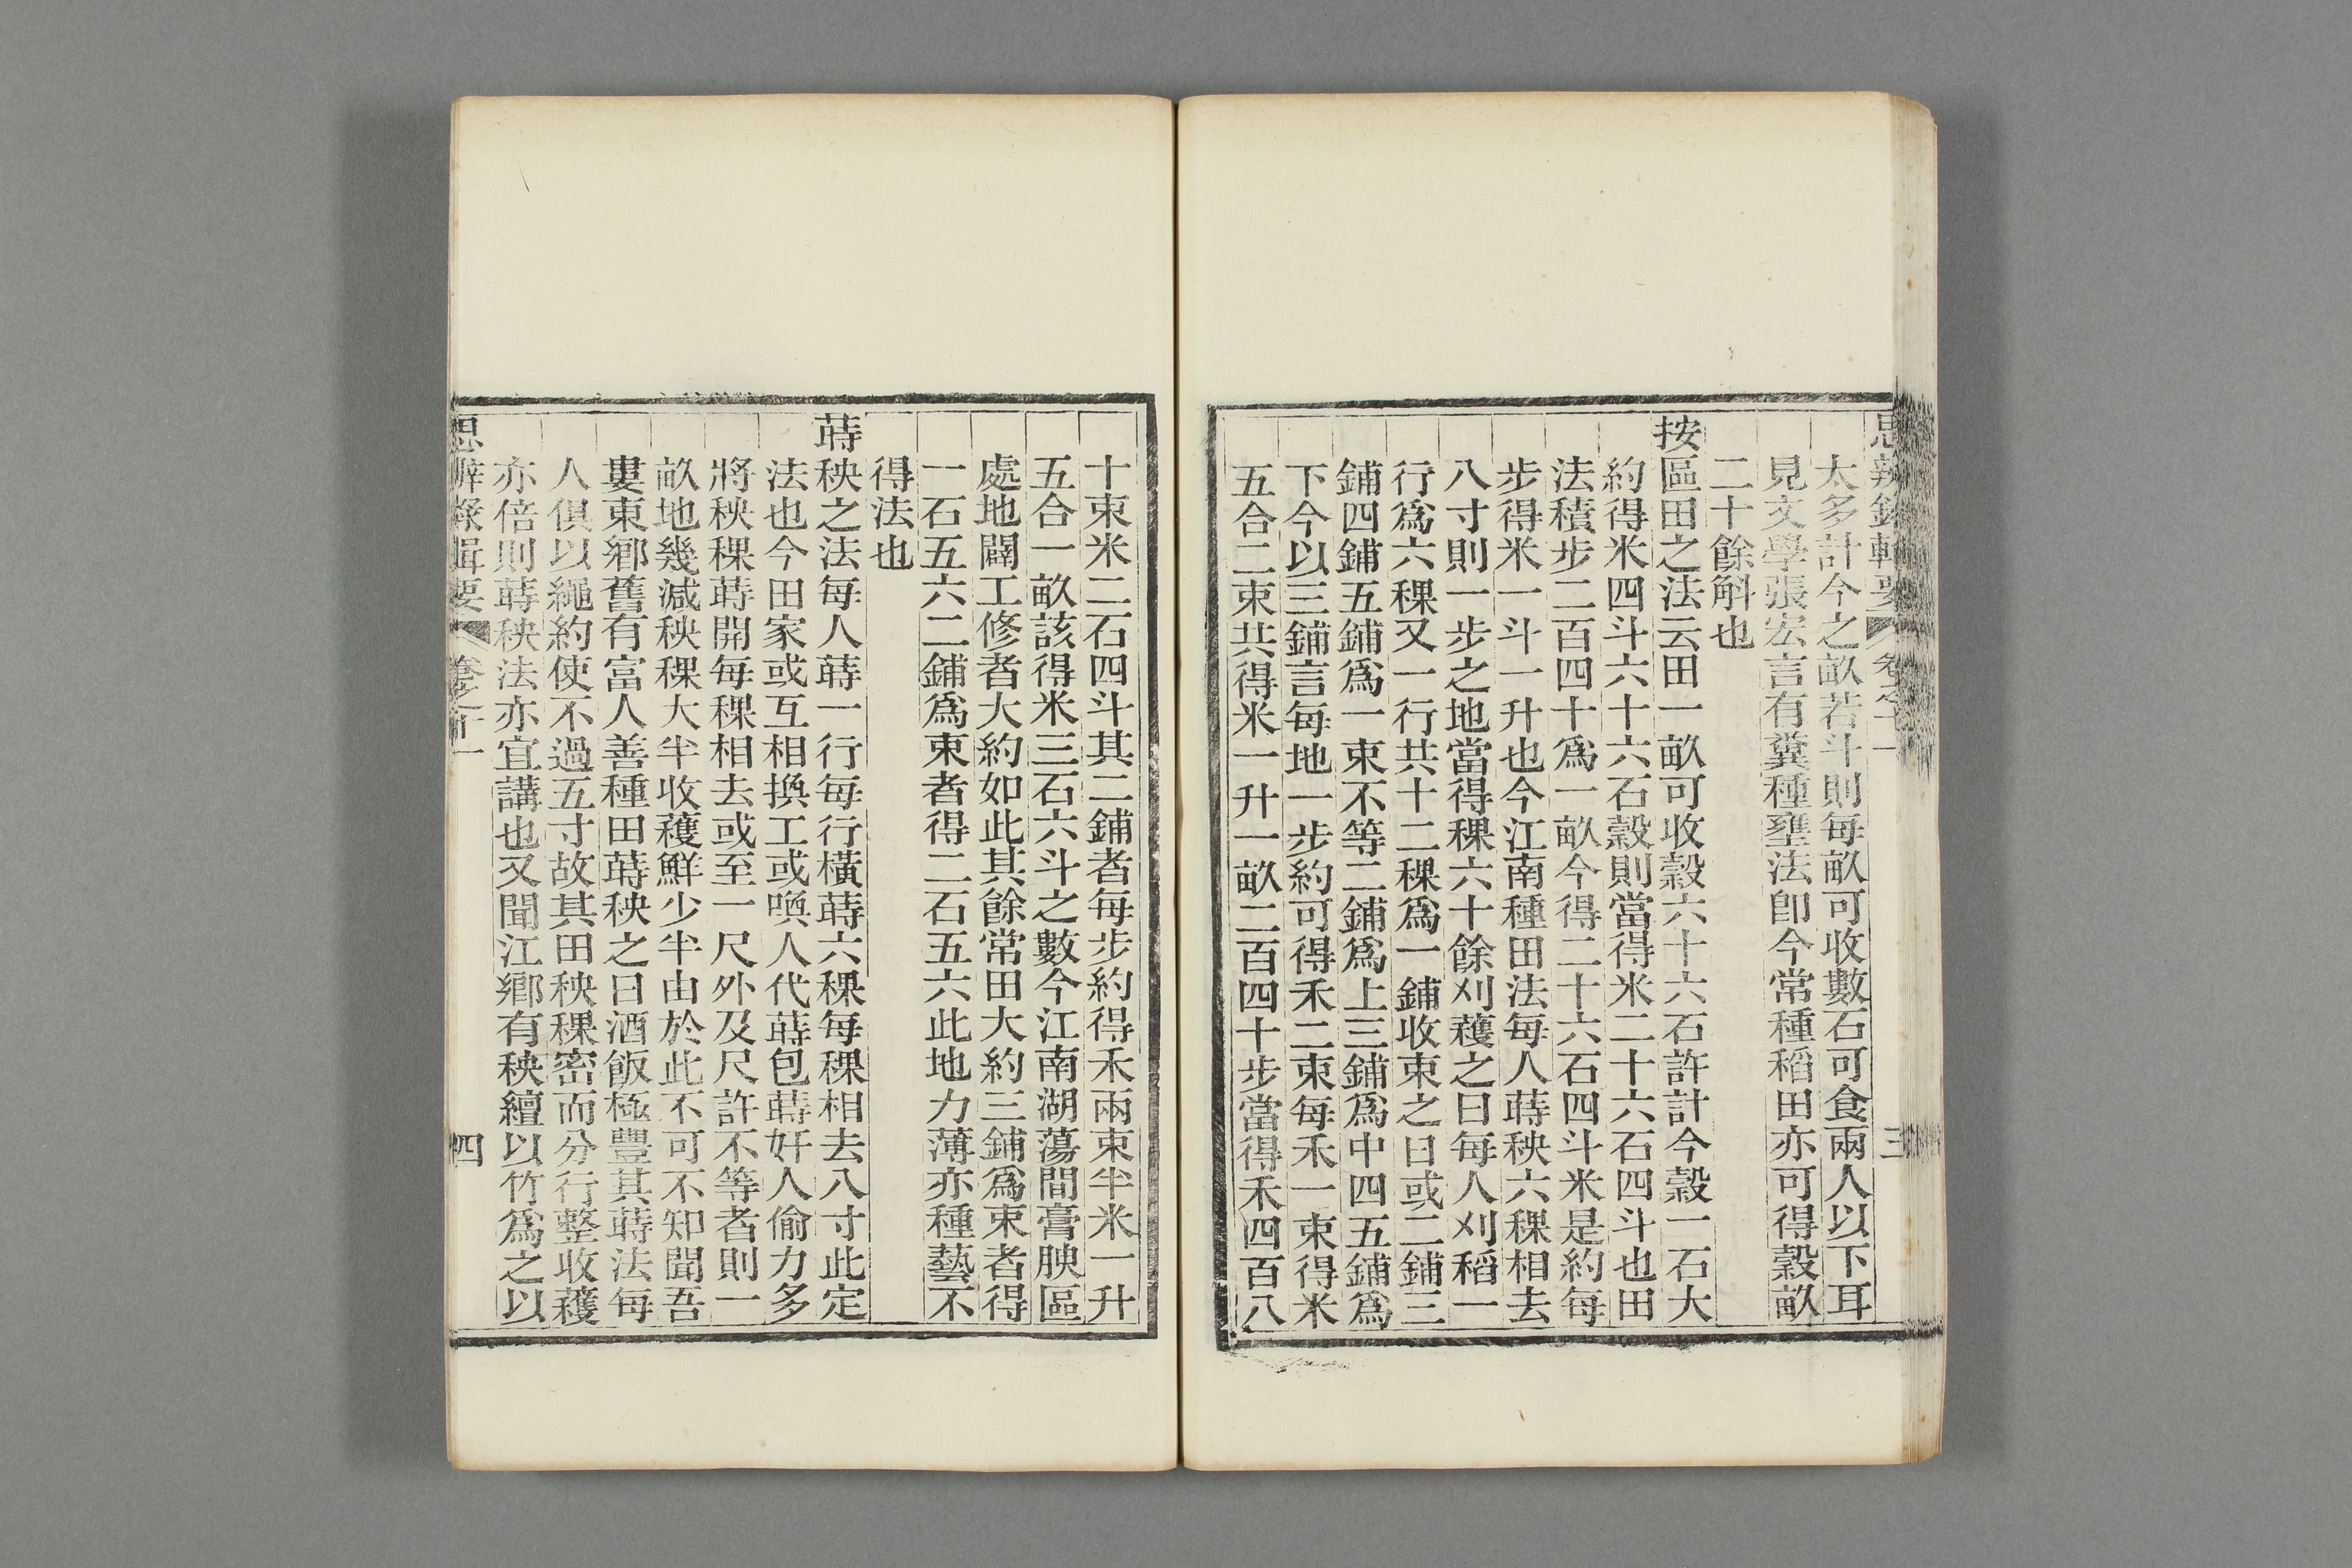 思辨錄輯要 卷之十一 三
太多計今之畝若斗則每畝可收數石可食兩人以下耳
見文學張宏言有糞種壅法卽今常種稻田亦可得穀畝
二十餘斛也
按區田之法云田一畝可收穀六十六石許計今穀一石大
約得米四斗六十六石穀則當得米二十六石四斗也田
法積步二百四十爲一畝今得二十六石四斗米是約每
步得米一斗一升也今江南種田法每人蒔秧六稞相去
八寸則一步之地當得稞六十餘刈穫之日每人刈稻一
行爲六稞又一行共十二稞爲一鋪收束之日或二鋪三
鋪四鋪五鋪爲一束不等二鋪爲上三鋪爲中四五鋪爲
下今以三鋪言每地一步約可得禾二束每禾一束得米
五合二束共得米一升一畝二百四十步當得禾四百八
十束米二石四斗其二鋪者每步約得禾兩束半米一升
五合一畝該得米三石六斗之數今江南湖蕩間膏腴區
處地闢工修者大約如此其餘常田大約三鋪爲束者得
一石五六二鋪爲束者得二石五六此地力薄亦種藝不
得法也
蒔秧之法每人蒔一行每行橫蒔六稞每稞相去八寸此定
法也今田家或互相換工或喚人代蒔包蒔奸人偷力多
將秧稞蒔開每稞相去或至一尺外及尺許不等者則一
畝地幾減秧稞大半收穫鮮少半由於此不可不知聞吾
婁東鄉舊有富人善種田蒔秧之日酒飯極豐其蒔法每
人俱以繩約使不過五寸故其田秧稞密而分行整收穫
亦倍則蒔秧法亦宜講也又聞江鄉有秧繵以竹爲之以
思辨錄輯要 卷之十一 四